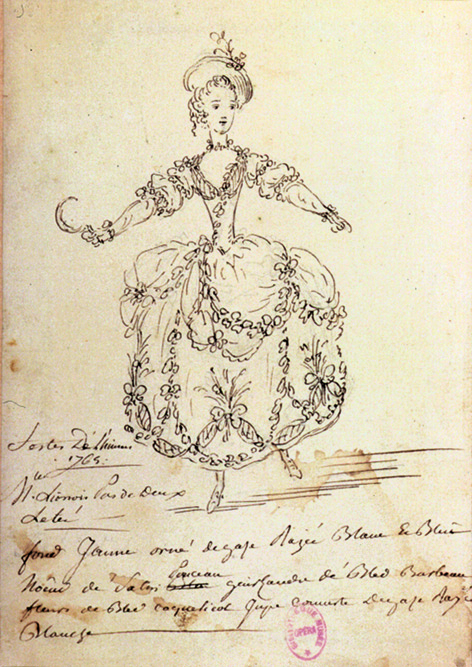 festes De L'himen
1765
Mlle Lionois Pas de deux
L'eté
fond Jaune orné de gaze Rayée Blanc Et Bleu
Ponceau
Nœuds de Satin guirlandre de Bled Barbeau
fleurs de Bled coquelicot Jupe couverte De gaze Rayée
Blanche
OPERA